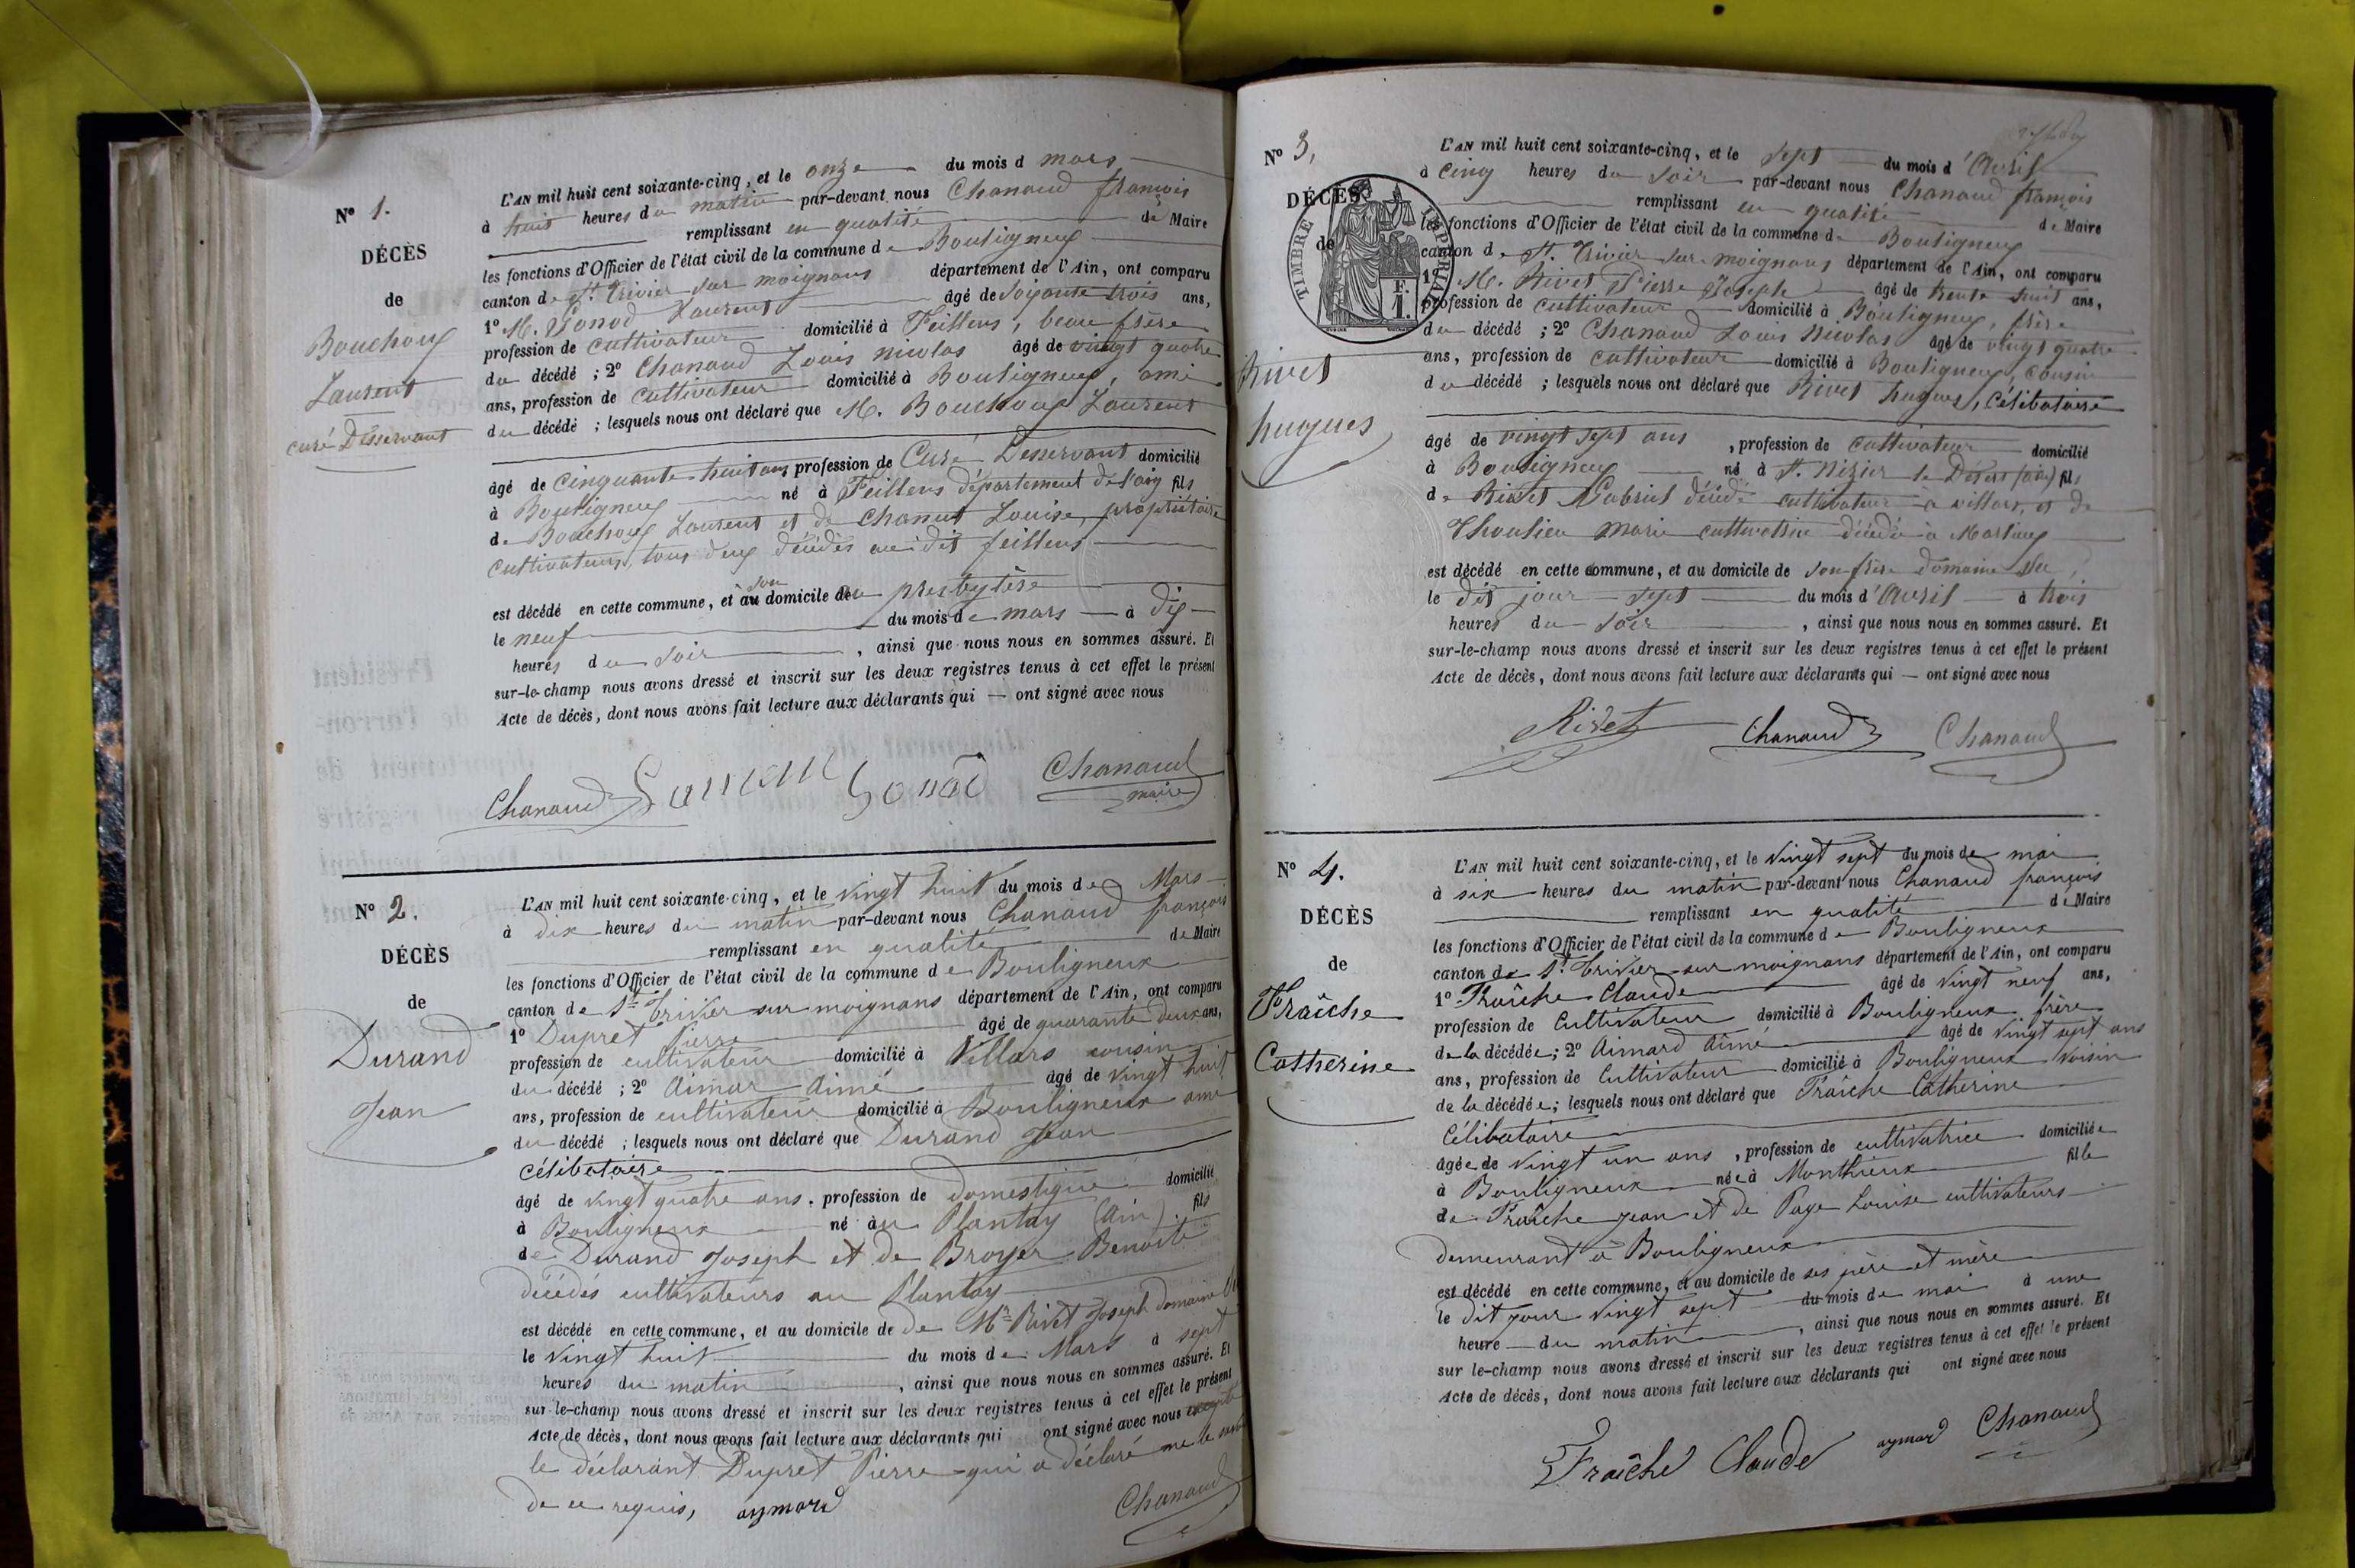 N° 1.
DÉCÈS
de
Bouchoux
Laurent
curé Désservant
L'AN mil huit cent soixante-cinq, et le onze du mois d mars
à huit heures du matin par-devant nous Chanaud françois
remplissant en qualité de Maire
les fonctions d'Officier de l'état civil de la commune de Bouligneux
canton de St. Trivier sur moignans département de l'Ain, ont comparu
1° M. Gonod Laurent âgé de soixante trois ans,
profession de cultivateur domicilié à Feillens, beau frère
du décédé ; 2° Chanaud Louis nicolas âgé de vingt quatre
ans, profession de cultivateur domicilié à Bouligneux, ami
du décédé ; lesquels nous ont déclaré que M. Bouchoux Laurent
âgé de cinquante huit ans profession de Curé Desservant domicilié
à Bouligneux né à Feillens département de l'ain fils
de Bouchoux Laurent et de Chanut Louise, propriétaire
cultivateurs, tous deux décédés audit feillens
est décédé en cette commune, et à son domicile au presbytère
le neuf du mois de mars à dix
heures du soir , ainsi que nous nous en sommes assuré. Et
sur-le-champ nous avons dressé et inscrit sur les deux registres tenus à cet effet le présent
Acte de décès, dont nous avons fait lecture aux déclarants qui — ont signé avec nous
Chanaud Laurent Gonod Chanaud
maire
N° 2.
DÉCÈS
de
Durand
Jean
L'AN mil huit cent soixante-cinq, et le vingt huit du mois de Mars
à dix heures du matin par-devant nous Chanaud françois
remplissant en qualité de Maire
les fonctions d'Officier de l'état civil de la commune de Bouligneux
canton de St Trivier sur moignans département de l'Ain, ont comparu
1° Dupret Pierre âgé de quarante deux ans,
profession de cultivateur domicilié à Villars cousin
du décédé ; 2° Aimar Aimé âgé de vingt huit
ans, profession de cultivateur domicilié à Bouligneux ami
du décédé ; lesquels nous ont déclaré que Durand Jean
célibataire
âgé de vingt quatre ans, profession de domestique domicilié
à Bouligneux né au Plantay (Ain) fils
de Durand Joseph et de Broyer Benoite
décédés cultivateurs au Plantay
est décédé en cette commune, et au domicile de de Mr Rivet Joseph domaine
le vingt huit du mois de Mars à sept
heures du matin , ainsi que nous nous en sommes assuré. Et
sur-le-champ nous avons dressé et inscrit sur les deux registres tenus à cet effet le présent
Acte de décès, dont nous avons fait lecture aux déclarants qui ont signé avec nous excepté
le déclarant Dupret Pierre qui a déclaré ne le
de ce requis, aymard Chanaud
N° 3,
DÉCÈS
de
TIMBRE IMPÉRIAL
F.
1.
Rivet
hugues
L'AN mil huit cent soixante-cinq, et le sept du mois d'Avril
à cinq heures du soir par-devant nous Chanaud françois
remplissant en qualité de Maire
les fonctions d'Officier de l'état civil de la commune de Bouligneux
canton de St. Trivier sur moignans département de l'Ain, ont comparu
1° M. Rivet Pierre Joseph âgé de trente huit ans,
profession de cultivateur domicilié à Bouligneux, frère
du décédé ; 2° Chanaud Louis Nicolas âgé de vingt quatre
ans, profession de cultivateur domicilié à Bouligneux, cousin
du décédé ; lesquels nous ont déclaré que Rivet hugues, Célibataire
âgé de vingt sept ans , profession de cultivateur domicilié
à Bouligneux né à St. Nizier le Désert (ain) fils
de Rivet Gabriel décédé cultivateur à villars, et de
Thoulieu marie cultivatrice décédée à Marlieux
est décédé en cette commune, et au domicile de son frère domaine
le dit jour sept du mois d'Avril à trois
heures du soir , ainsi que nous nous en sommes assuré. Et
sur-le-champ nous avons dressé et inscrit sur les deux registres tenus à cet effet le présent
Acte de décès, dont nous avons fait lecture aux déclarants qui — ont signé avec nous
Rivet Chanaud Chanaud
N° 4.
DÉCÈS
de
Fraîche
Catherine
L'AN mil huit cent soixante-cinq, et le vingt sept du mois de mai
à six heures du matin par-devant nous Chanaud françois
remplissant en qualité de Maire
les fonctions d'Officier de l'état civil de la commune de Bouligneux
canton de St. Trivier sur moignans département de l'Ain, ont comparu
1° Fraîche Claude âgé de vingt neuf ans,
profession de Cultivateur domicilié à Bouligneux frère
de la décédée ; 2° Aimard Aimé âgé de vingt sept ans
ans, profession de Cultivateur domicilié à Bouligneux voisin
de la décédée ; lesquels nous ont déclaré que Fraîche Catherine
Célibataire
âgée de vingt un ans , profession de cultivatrice domiciliée
à Bouligneux née à Monthieux fille
de Fraîche Jean et de Page Louise cultivateurs
demeurant à Bouligneux
est décédé en cette commune, et au domicile de ses père et mère
le dit jour vingt sept du mois de mai à une
heure du matin , ainsi que nous nous en sommes assuré. Et
sur le-champ nous avons dressé et inscrit sur les deux registres tenus à cet effet le présent
Acte de décès, dont nous avons fait lecture aux déclarants qui ont signé avec nous
Fraîche Claude aymard Chanaud